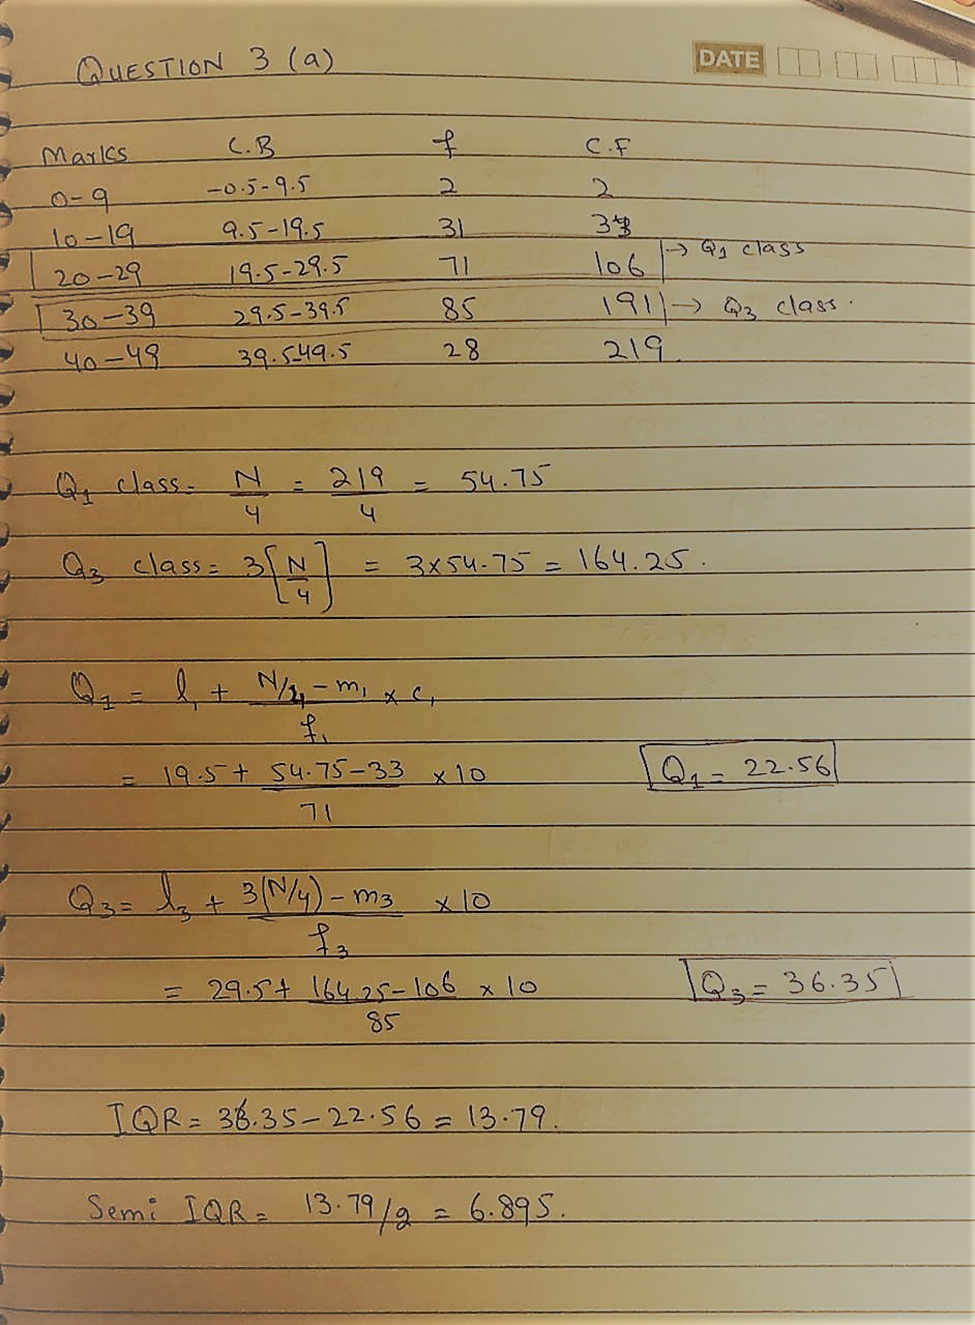 QUESTION 3 (a)
DATE
Marks C.B f C.F
0-9 -0.5-9.5 2 2
10-19 9.5-19.5 31
20-29 19.5-29.5 71 106 → Q1 class
30-39 29.5-39.5 85 191 → Q3 class.
40-49 39.5-49.5 28 219.
Q1 class = N/4 = 219/4 = 54.75
Q3 class = 3[N/4] = 3x54.75 = 164.25.
Q1 = l1 + N/4 - m1 / f1 x c1
= 19.5 + 54.75-33 / 71 x 10
Q1 = 22.56
Q3 = l3 + 3(N/4) - m3 / f3 x10
= 29.5 + 164.25-106 / 85 x 10
Q3 = 36.35
IQR = 36.35 - 22.56 = 13.79.
Semi IQR = 13.79/2 = 6.895.